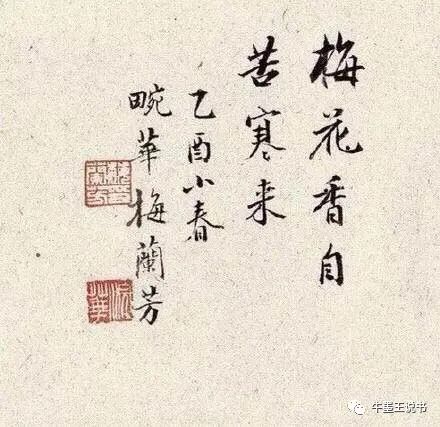 梅花香自
苦寒来
乙酉小春
畹華梅蘭芳
牛莹王说书